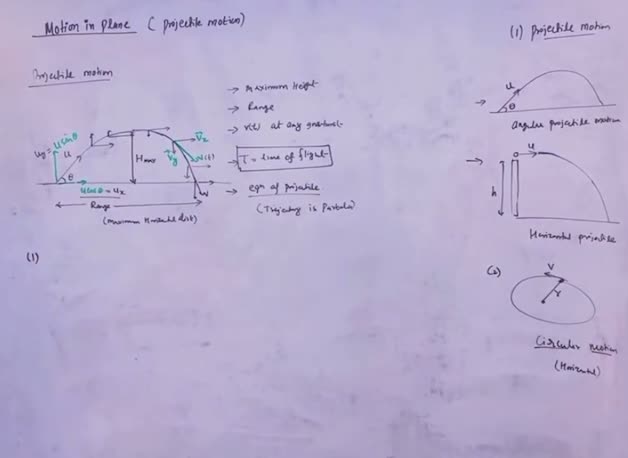 Motion in plane ( projectile motion)
Projectile motion
→ Maximum Height
→ Range
→ v(t) at any
→ T = time of flight
→ eqn of projectile
(Trajectory is Parabola)
uy = u sinθ
u
θ
u cosθ = ux
Hmax
Vx
Vy
v(t)
Range
(maximum Horizontal dist)
(1)
(1) projectile motion
u
θ
angular projectile motion
u
h
Horizontal projectile
(2)
V
r
Circular motion
(Horizontal)